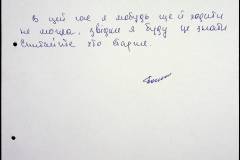 В цей час я мабудь ще й ходити
не могла, звідки я буду це знати
Спитайте хто старше.